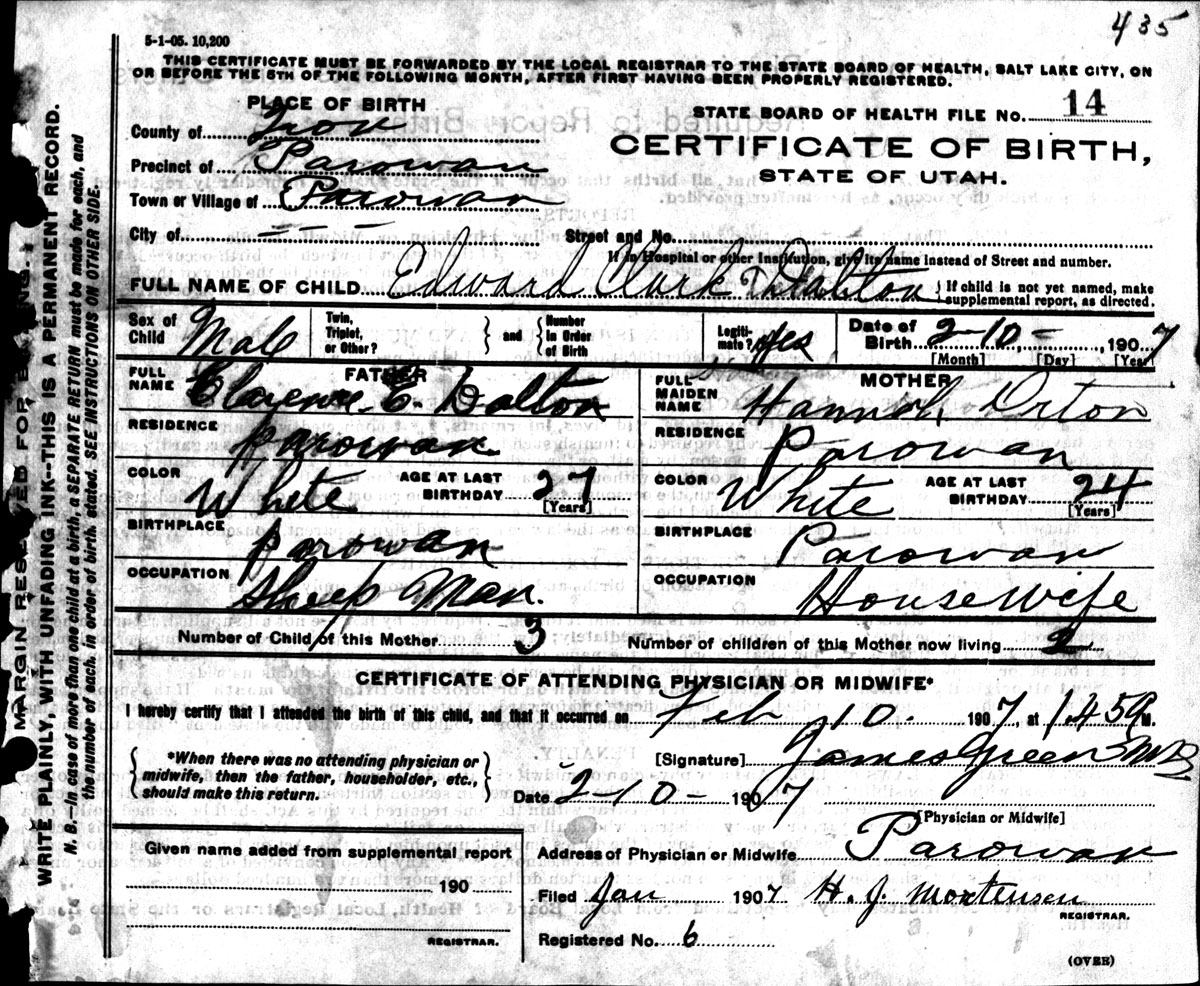 435
5-1-05. 10,200
THIS CERTIFICATE MUST BE FORWARDED BY THE LOCAL REGISTRAR TO THE STATE BOARD OF HEALTH, SALT LAKE CITY, ON
OR BEFORE THE 5TH OF THE FOLLOWING MONTH, AFTER FIRST HAVING BEEN PROPERLY REGISTERED.
PLACE OF BIRTH
STATE BOARD OF HEALTH FILE NO. 14
County of Iron
CERTIFICATE OF BIRTH,
Precinct of Parowan
STATE OF UTAH.
Town or Village of Parowan
City of --- Street and No.
If in Hospital or other Institution, give its name instead of Street and number.
FULL NAME OF CHILD Edward Clark Dalton { If child is not yet named, make supplemental report, as directed.
Sex of Child Male Twin, Triplet, or Other? } and { Number in Order of Birth Legiti-mate? Yes Date of Birth 2-10-, 1907
[Month] [Day] [Year]
FATHER MOTHER
FULL NAME Clarence C. Dalton FULL MAIDEN NAME Hannah Orton
RESIDENCE Parowan RESIDENCE Parowan
COLOR White AGE AT LAST BIRTHDAY 27 [Years] COLOR White AGE AT LAST BIRTHDAY 24 [Years]
BIRTHPLACE Parowan BIRTHPLACE Parowan
OCCUPATION Sheep Man. OCCUPATION Housewife
Number of Child of this Mother 3 Number of children of this Mother now living 2
CERTIFICATE OF ATTENDING PHYSICIAN OR MIDWIFE*
I hereby certify that I attended the birth of this child, and that it occurred on Feb 10. 1907, at 1.45 a M.
{ *When there was no attending physician or midwife, then the father, householder, etc., should make this return. }
[Signature] James Green MD
Date 2-10- 1907
[Physician or Midwife]
Given name added from supplemental report
Address of Physician or Midwife Parowan
190
Filed Jan 1907 H. J. Mortensen
REGISTRAR.
REGISTRAR.
Registered No. 6
(OVER)
MARGIN RESERVED FOR BINDING.
WRITE PLAINLY, WITH UNFADING INK--THIS IS A PERMANENT RECORD.
N. B.--In case of more than one child at a birth, a SEPARATE RETURN must be made for each, and
the number of each, in order of birth, stated. SEE INSTRUCTIONS ON OTHER SIDE.